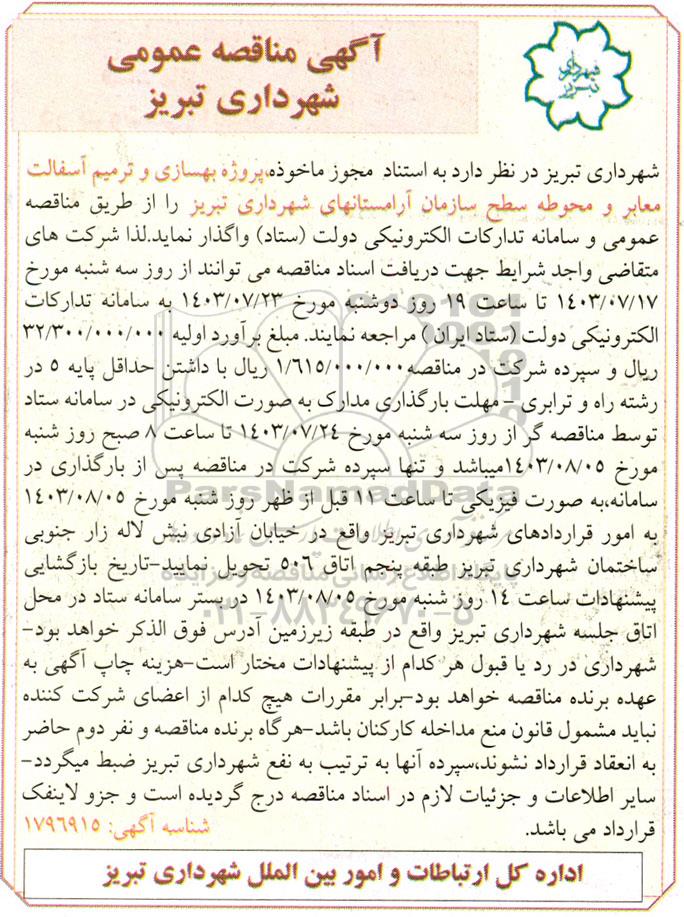 آگهی مناقصه عمومی
شهرداری تبریز
شهرداری تبریز
شهرداری تبریز در نظر دارد به استناد مجوز ماخوذه،پروژه بهسازی و ترمیم آسفالت
معابر و محوطه سطح سازمان آرامستانهای شهرداری تبریز را از طریق مناقصه
عمومی و سامانه تدارکات الکترونیکی دولت (ستاد) واگذار نماید.لذا شرکت های
متقاضی واجد شرایط جهت دریافت اسناد مناقصه می توانند از روز سه شنبه مورخ
۱۴۰۳/۰۷/۱۷ تا ساعت ۱۹ روز دوشنبه مورخ ۱۴۰۳/۰۷/۲۳ به سامانه تدارکات
الکترونیکی دولت (ستاد ایران ) مراجعه نمایند. مبلغ برآورد اولیه ۳۲/۳۰۰/۰۰۰/۰۰۰
ریال و سپرده شرکت در مناقصه۱/۶۱۵/۰۰۰/۰۰۰ ریال با داشتن حداقل پایه ۵ در
رشته راه و ترابری – مهلت بارگذاری مدارک به صورت الکترونیکی در سامانه ستاد
توسط مناقصه گر از روز سه شنبه مورخ ۱۴۰۳/۰۷/۲۴ تا ساعت ۸ صبح روز شنبه
مورخ ۱۴۰۳/۰۸/۰۵میباشد و تنها سپرده شرکت در مناقصه پس از بارگذاری در
سامانه،به صورت فیزیکی تا ساعت ۱۱ قبل از ظهر روز شنبه مورخ ۱۴۰۳/۰۸/۰۵
به امور قراردادهای شهرداری تبریز واقع در خیابان آزادی نبش لاله زار جنوبی
ساختمان شهرداری تبریز طبقه پنجم اتاق ۵۰۶ تحویل نمایید-تاریخ بازگشایی
پیشنهادات ساعت ۱۴ روز شنبه مورخ ۱۴۰۳/۰۸/۰۵ در بستر سامانه ستاد در محل
اتاق جلسه شهرداری تبریز واقع در طبقه زیرزمین آدرس فوق الذکر خواهد بود-
شهرداری در رد یا قبول هر کدام از پیشنهادات مختار است-هزینه چاپ آگهی به
عهده برنده مناقصه خواهد بود-برابر مقررات هیچ کدام از اعضای شرکت کننده
نباید مشمول قانون منع مداخله کارکنان باشد-هرگاه برنده مناقصه و نفر دوم حاضر
به انعقاد قرارداد نشوند،سپرده آنها به ترتیب به نفع شهرداری تبریز ضبط میگردد-
سایر اطلاعات و جزئیات لازم در اسناد مناقصه درج گردیده است و جزو لاینفک
قرارداد می باشد.
شناسه آگهی: ۱۷۹۶۹۱۵
اداره کل ارتباطات و امور بین الملل شهرداری تبریز
ParsNamadData
پایگاه اطلاع رسانی مناقصه و مزایده
۰۲۱-۸۸۳۴۹۶۷۰-۵